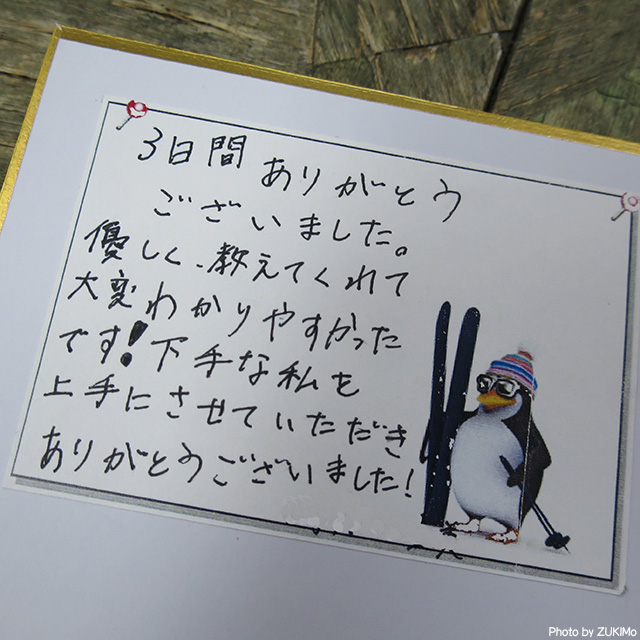 3日間 ありがとう
ございました。
優しく、教えてくれて
大変わかりやすかった
です!下手な私を
上手にさせていただき
ありがとうございました!
Photo by ZUKIMo